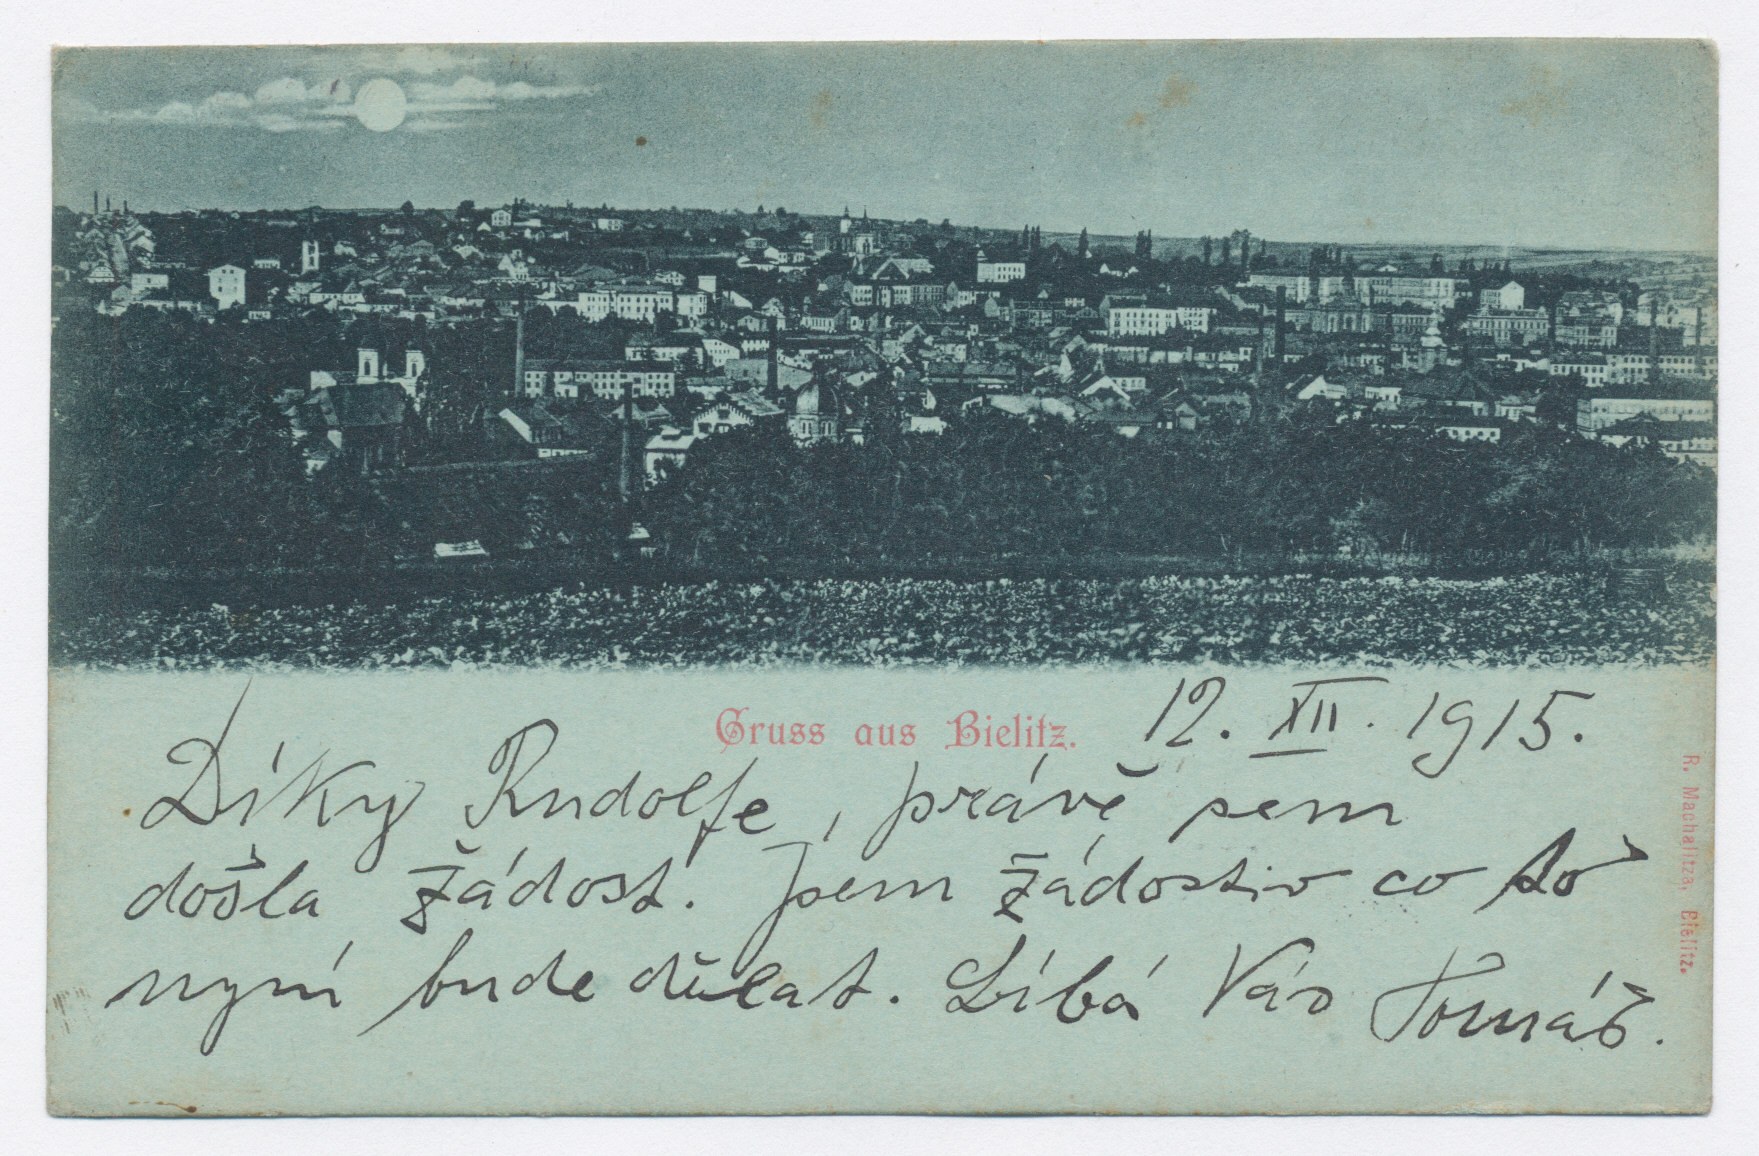 Gruss aus Bielitz.
12. XII. 1915.
Díky Rudolfe, právě sem
došla žádost. Jsem žádostiv co
nyní bude dělat. Líbá Vás Tomáš.
R. Machalitza, Bielitz.